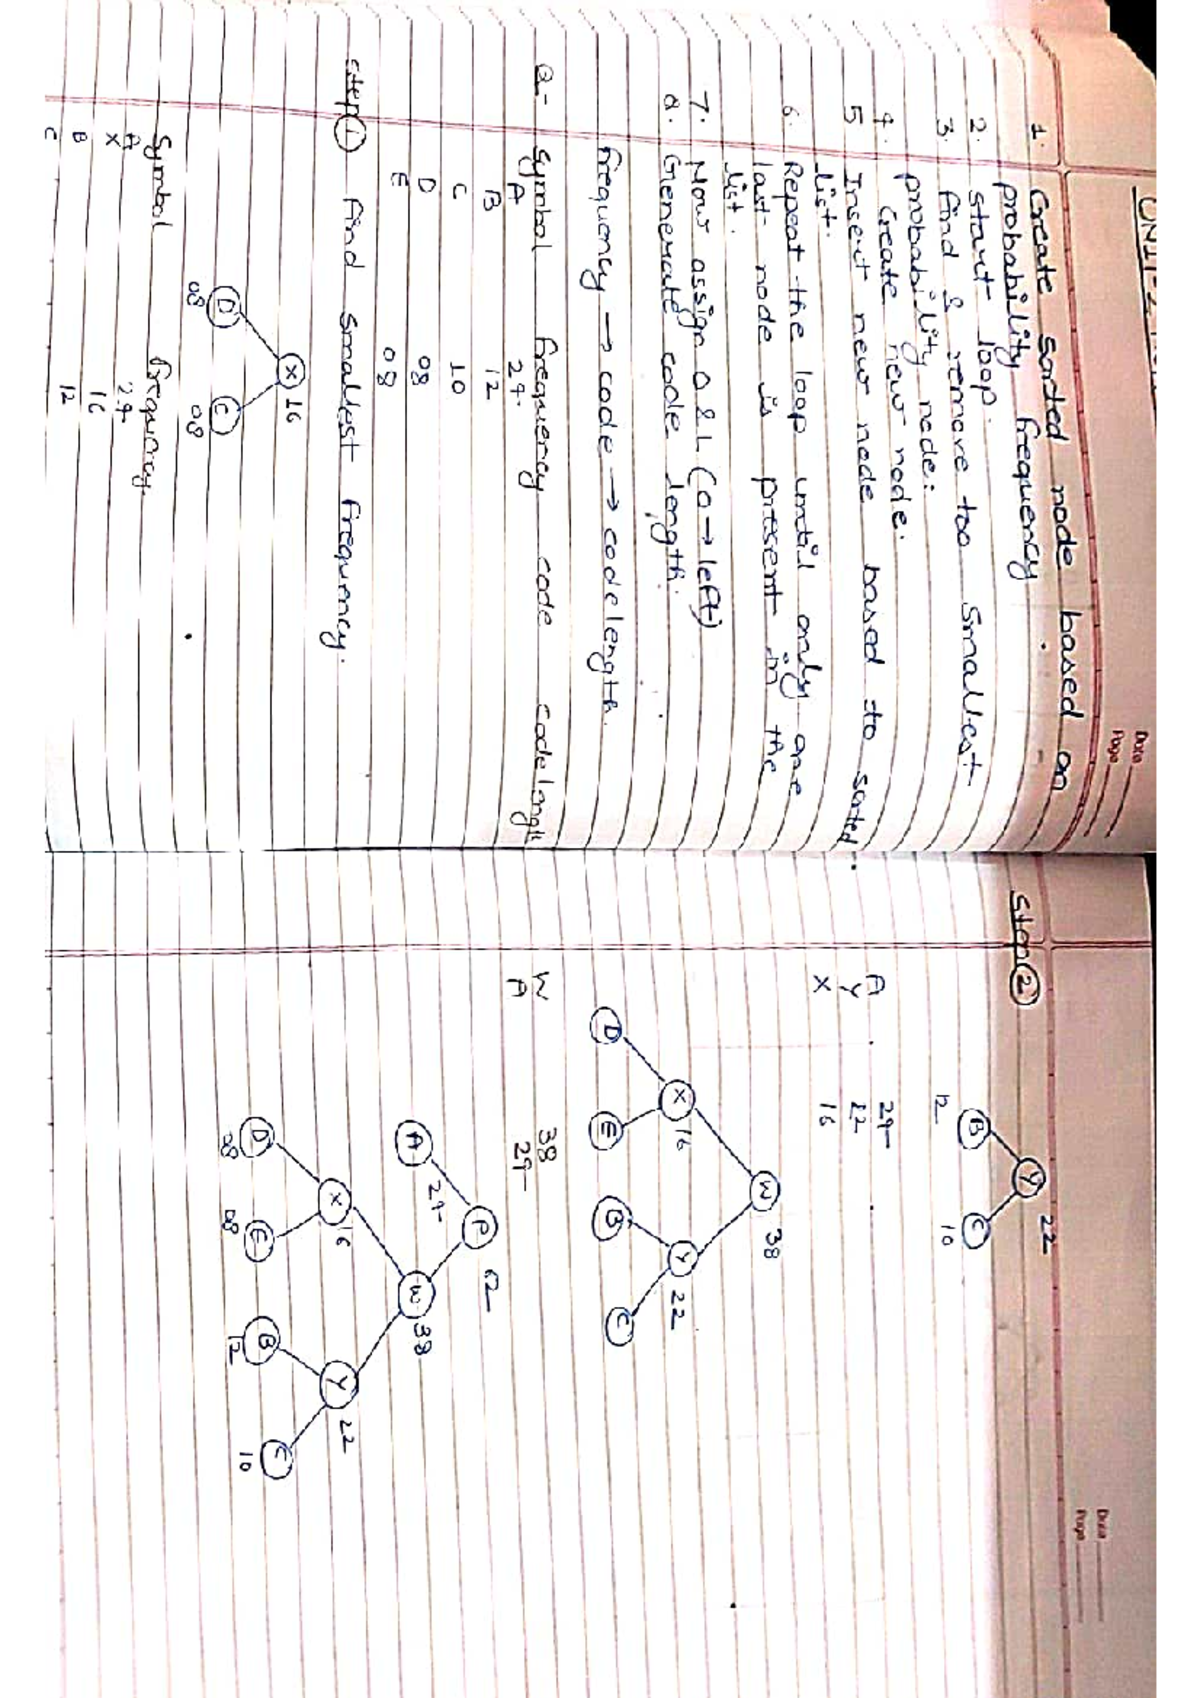 Date
Page
1. Create sorted node based on
probability frequency
2. start loop.
3. find & remove too smallest
probability node:
4. Create new node.
5 Insert new node based to sorted
list.
6. Repeat the loop until only one
last node is present in the
list.
7. Now assign 0 & 1 (0→left)
a. Generate code length.
frequency → code → codelength.
Q- Symbol frequency code codelength
A 24
B 12
C 10
D 08
E 08
step 1 find smallest frequency.
X 16
D E
08 08
Symbol frequency
A 24
X 16
B 12
C
Date
Page
Step 2
Y 22
B C
12 10
A 24
Y 22
X 16
W 38
X 16 Y 22
D E B C
W 38
A 24
P 62
A 24 W 38
X 16 Y 22
D E B C
08 08 12 10